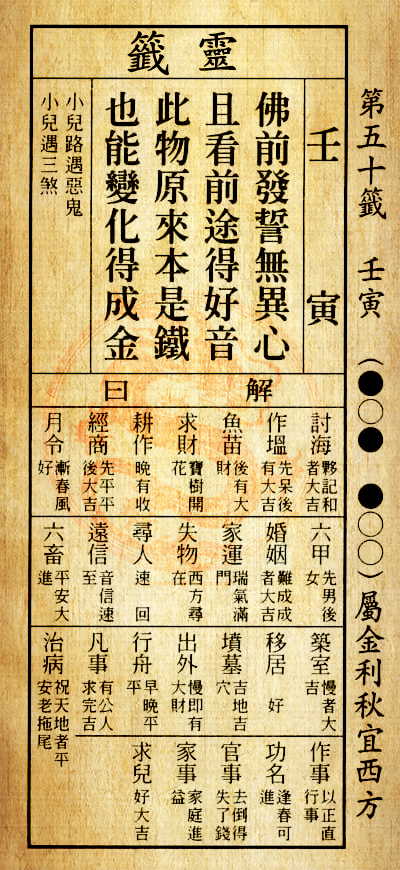 第五十籤 壬寅 (●○● ●○○) 屬金利秋宜西方
靈籤
壬寅
佛前發誓無異心
且看前途得好音
此物原來本是鐵
也能變化得成金
小兒路遇惡鬼
小兒遇三煞
解曰
討海 夥記和者大吉
作塭 先呆後有大吉
魚苗 後有大財
求財 寶樹開花
耕作 晚有收
經商 先平平後大吉
月令 漸春風好
六甲 先男後女
婚姻 難成成者大吉
家運 瑞氣滿門
失物 西方尋在
尋人 速回
遠信 音信速至
六畜 平安大進
築室 慢者大吉
移居 好
墳墓 吉地吉穴
出外 慢即有大財
行舟 早晚平平
凡事 有公人求完吉
治病 祝天地者平安老拖尾
作事 以正直行事
功名 逢春可進
官事 去倒得失了錢
家事 家庭進益
求兒 好大吉